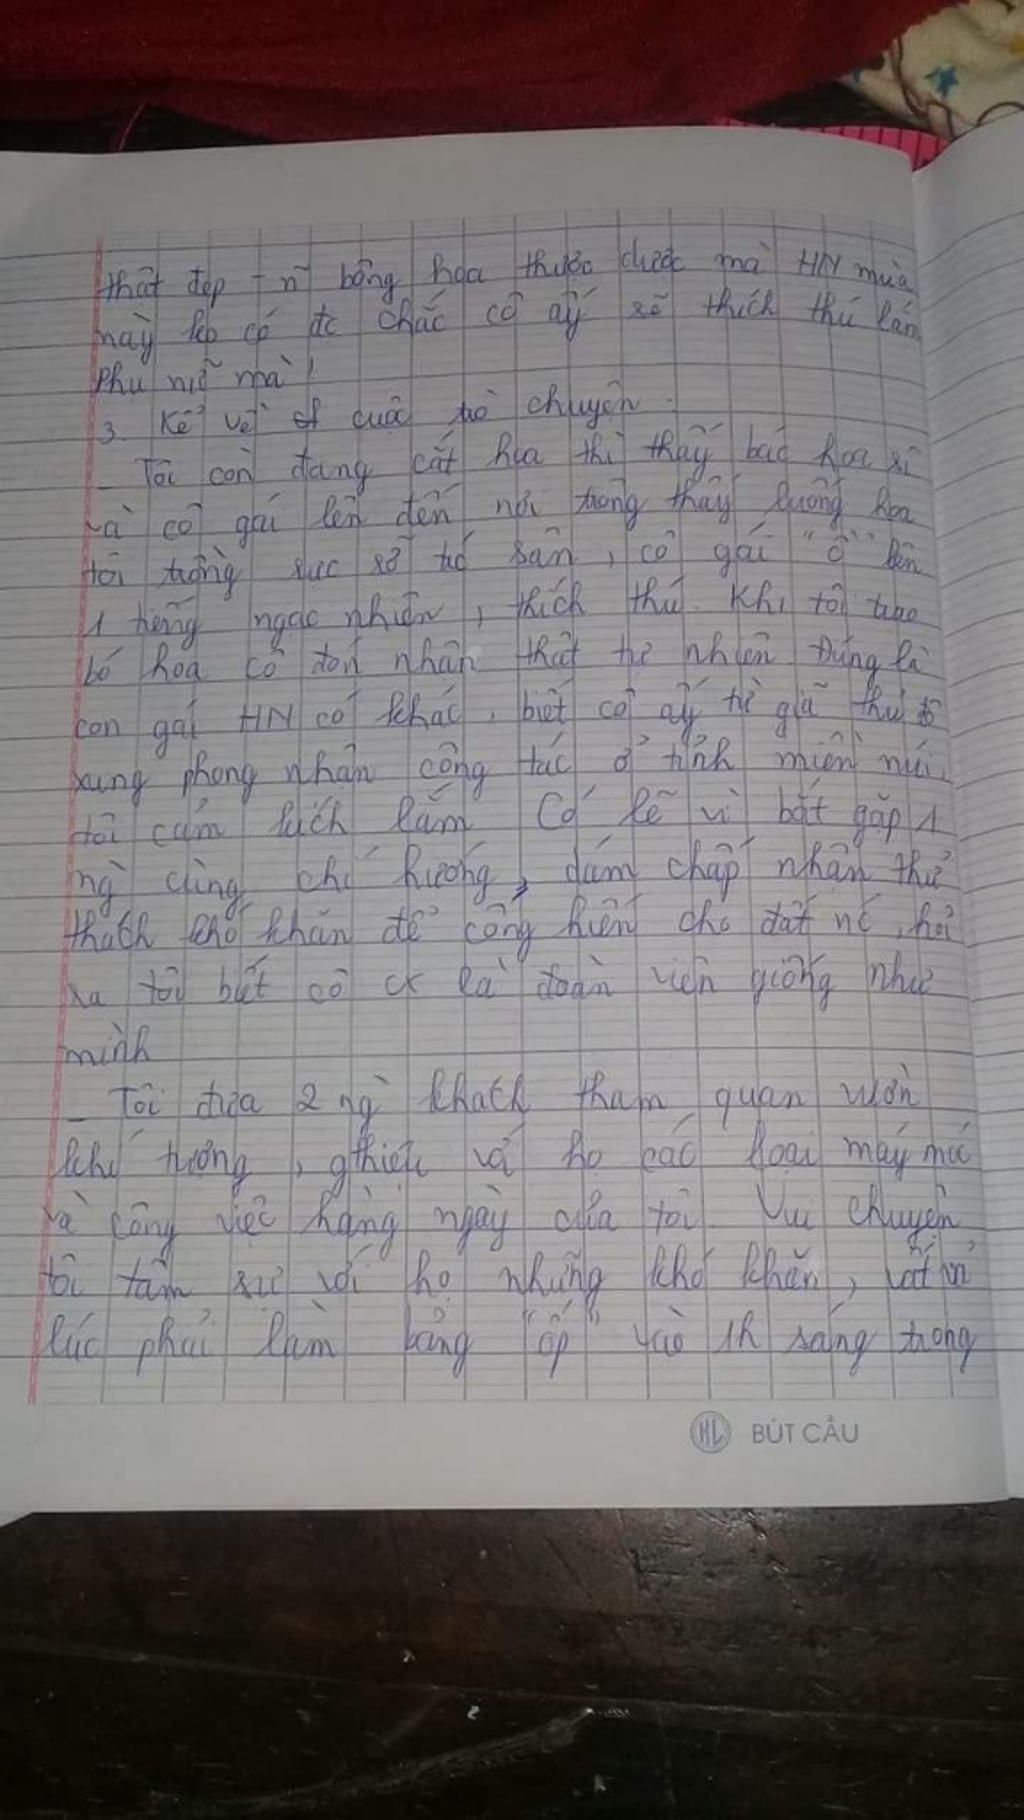 thật đẹp - n~ bông hoa thược dược mà HN mùa
này ko có đc chắc cô ấy sẽ thích thú lắm
Phụ nữ mà !
3. Kể về cuộc trò chuyện.
_ Tôi còn đang cắt hoa thì thấy bác họa sĩ
và cô gái lên đến nơi trông thấy luống hoa
tôi trồng rực rỡ trc sân, cô gái "ồ" lên
1 tiếng ngạc nhiên, thích thú. Khi tôi trao
bó hoa cô đón nhận thật tự nhiên Đúng là
con gái HN có khác, biết cô ấy từ giã thủ đô
xung phong nhận công tác ở tỉnh miền núi,
tôi cảm kích lắm Có lẽ vì bắt gặp 1
ng` cùng chí hướng, dám chấp nhận thử
thách khó khăn để cống hiến cho đất nc, hỏi
ra tôi biết cô là đoàn viên giống như
mình
_ Tôi đưa 2 ng` khách tham quan vườn
khí tượng, gthiệu với họ các loại máy móc
và công việc hằng ngày của tôi. Vui chuyện
tôi tâm sự với họ những khó khăn, vất vả
lúc phải làm bảng "ốp" vào 1h sáng trong
HL BÚT CẦU